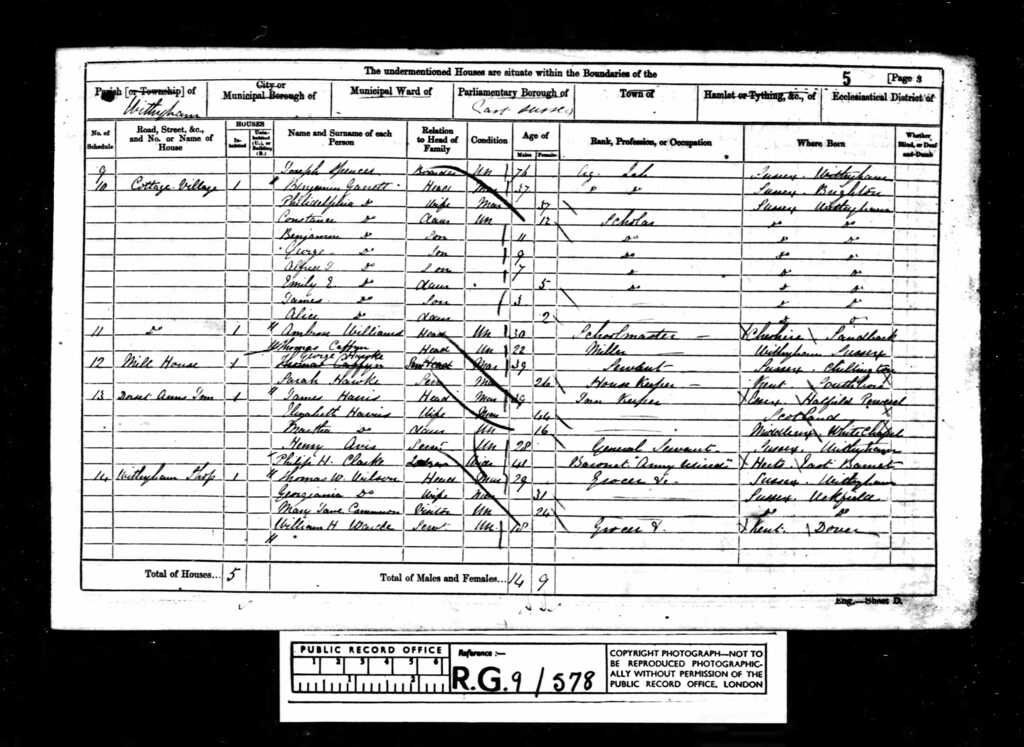 The undermentioned Houses are situate within the Boundaries of the 5 [Page 3
Parish [or Township] of City or Municipal Borough of Municipal Ward of Parliamentary Borough of Town of Hamlet or Tything, &c., of Ecclesiastical District of
Withyham East Sussex
No. of Schedule Road, Street, &c., and No. or Name of House HOUSES Inhabited Uninhabited (U.), or Building (B.) Name and Surname of each Person Relation to Head of Family Condition Age of Males Females Rank, Profession, or Occupation Where Born Whether Blind, or Deaf-and-Dumb
9 Joseph Spencer Boarder Un 76 Ag. Lab Sussex Withyham
10 Cottage Village 1 Benjamin Garrett Head Mar 37 Do Do Sussex Brighton
Philidelphia Do Wife Mar 37 Sussex Withyham
Constance Do Daur Un 12 Scholar Do Do
Benjamin Do Son 11 Do Do Do
George Do Son 9 Do Do Do
Alfred Do Son 7 Do Do Do
Emily E. Do Daur 5 Do Do Do
James Do Son 3 Do Do
Alice Do Daur 2 Do Do
11 Do 1 Ambrose Williams Head Un 30 Schoolmaster Cheshire Sandbach
Thomas Caffyn Head Un 22 Miller Withyham Sussex
12 Mill House 1 George Head Mar 39 Servant Sussex Chillington
Sarah Hawke Serv 26 House Keeper Kent
13 Dorset Arms Inn 1 James Harris Head Mar Inn Keeper Essex Hatfield
Elizabeth Harris Wife Mar 44 Scotland
Martha Do Daur Un 16 Middlesex White Chapel
Henry Avis Servt Un 28 General Servant Sussex Withyham
Philip H. Clarke 41 Baronet Army Herts East Barnet
14 Withyham Shop 1 Thomas W. Wilson Head Mar 29 Grocer &c Sussex Withyham
Georgiania Do Wife Mar 31 Sussex Uckfield
Mary Jane Visitor Un 26 Do Do
William H Warde Serv Un 18 Grocer Kent Dover
Total of Houses... 5 Total of Males and Females... 14 9
Eng.—Sheet D.
PUBLIC RECORD OFFICE
1 2 3 4 5 6
Reference :—
R.G. 9/578
COPYRIGHT PHOTOGRAPH—NOT TO
BE REPRODUCED PHOTOGRAPHIC-
ALLY WITHOUT PERMISSION OF THE
PUBLIC RECORD OFFICE, LONDON